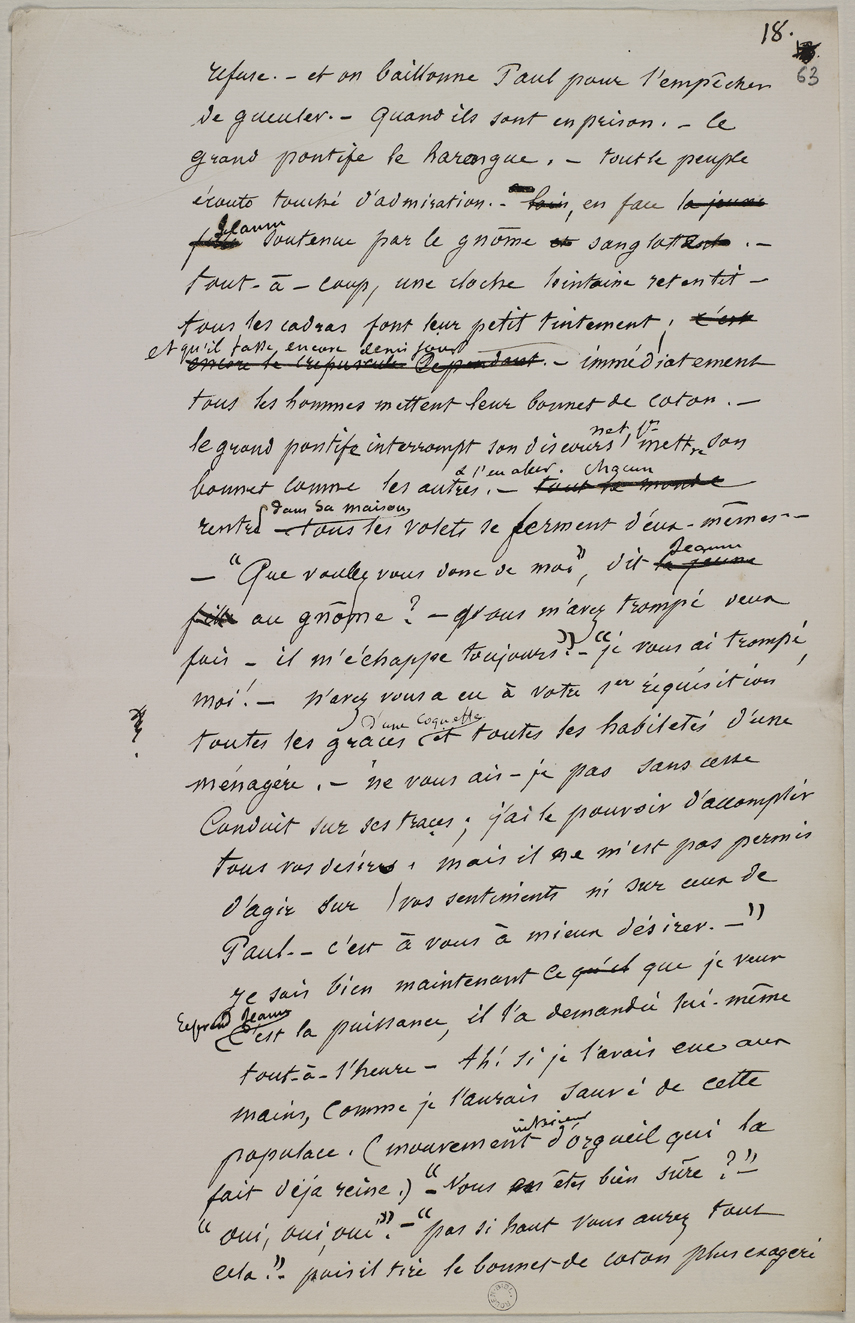 18.
63
refuse. - et on baillonne Paul pour l'empêcher
de gueuler. - Quand ils sont en prison. - le
grand pontife le harangue. - tout le peuple
écoute touché d'admiration. - en face la jeune
fille Jeanne soutenue par le gnôme et sanglotant. -
tout-à-coup, une cloche lointaine retentit -
tous les cadrans font leur petit tintement ; c'est
et qu'il fasse encore demi jour
encore le crépuscule Cependant. - immédiatement
tous les hommes mettent leur bonnet de coton. -
le grand pontife interrompt son discours, net, pr mettre son
bonnet comme les autres. - & s'en aller. chacun tout le monde
rentre dans sa maison - tous les volets se ferment d'eux-mêmes -
- "Que voulez vous donc de moi", dit Jeanne la jeune
fille au gnôme ? - vous m'avez trompé deux
fois - il m'échappe toujours"? - "je vous ai trompé,
moi ! - n'avez vous pas eu à votre 1er réquisition
toutes les grâces d'une coquette et toutes les habiletés d'une
ménagère. - ne vous ais-je pas sans cesse
Conduit sur ses traces ; j'ai le pouvoir d'accomplir
tous vos désirs : mais il ne m'est pas permis
d'agir sur vos sentiments ni sur ceux de
Paul. - c'est à vous à mieux désirer. - "
Je sais bien maintenant ce qu'il que je veux
reprend Jeanne
C'est la puissance, il l'a demandée lui-même
tout-à-l'heure - Ah! si je l'avais eue aux
mains, Comme je l'aurais sauvé de cette
populace. (mouvement intérieur d'orgueil qui la
fait déja reine.) - "Vous en êtes bien sûre ?" -
"oui, oui, oui". - "pas si haut vous aurez tout
cela." - puis il tire le bonnet de coton plus exagéré